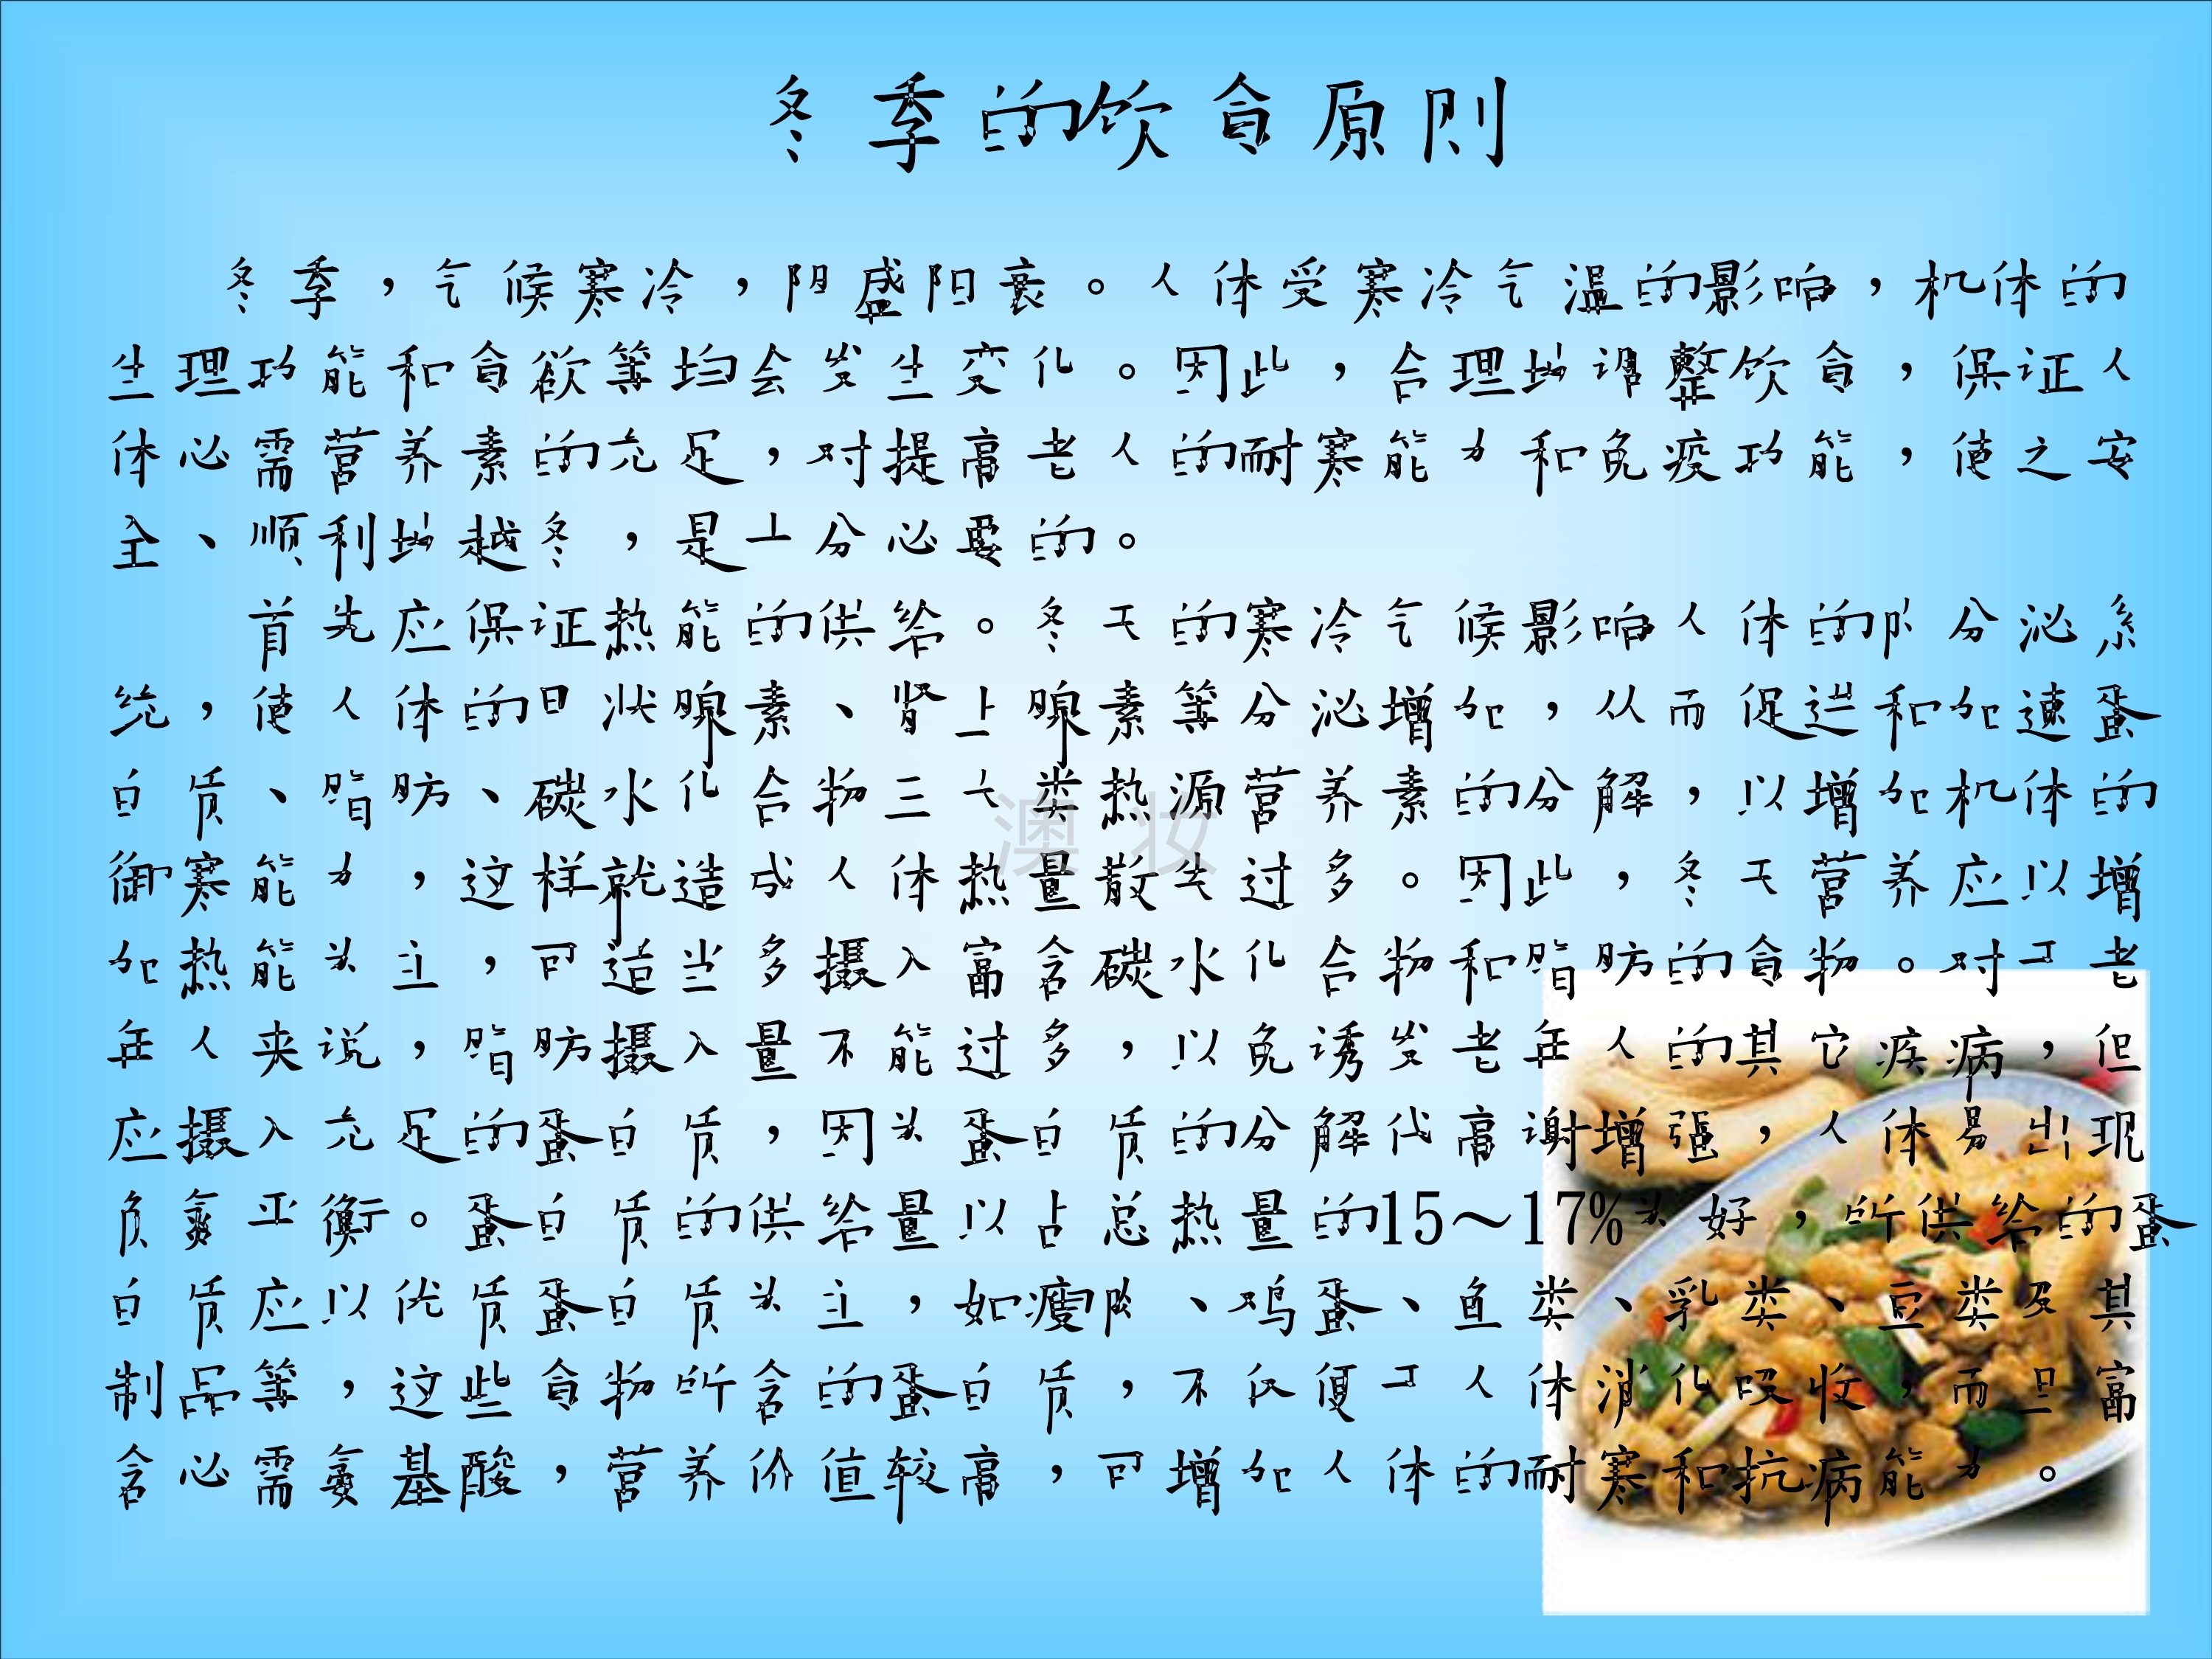 冬季的饮食原则
冬季，气候寒冷，阴盛阳衰。人体受寒冷气温的影响，机体的
生理功能和食欲等均会发生变化。因此，合理地调整饮食，保证人
体必需营养素的充足，对提高老人的耐寒能力和免疫功能，使之安
全、顺利地越冬，是十分必要的。
首先应保证热能的供给。冬天的寒冷气候影响人体的内分泌系
统，使人体的甲状腺素、肾上腺素等分泌增加，从而促进和加速蛋
白质、脂肪、碳水化合物三大类热源营养素的分解，以增加机体的
澳妆
御寒能力，这样就造成人体热量散失过多。因此，冬天营养应以增
加热能为主，可适当多摄入富含碳水化合物和脂肪的食物。对于老
年人来说，脂肪摄入量不能过多，以免诱发老年人的其它疾病，但
应摄入充足的蛋白质，因为蛋白质的分解代高谢增强，人体易出现
负氮平衡。蛋白质的供给量以占总热量的15～17%为好，所供给的蛋
白质应以优质蛋白质为主，如瘦肉、鸡蛋、鱼类、乳类、豆类及其
制品等，这些食物所含的蛋白质，不仅便于人体消化吸收，而且富
含必需氨基酸，营养价值较高，可增加人体的耐寒和抗病能力。